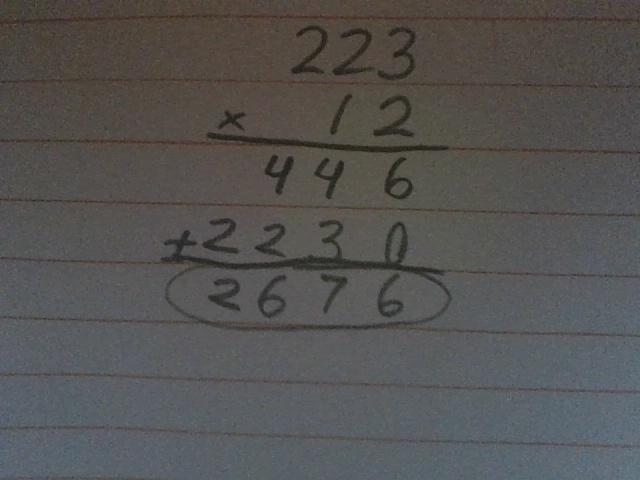 223
× 12
446
+2230
2676